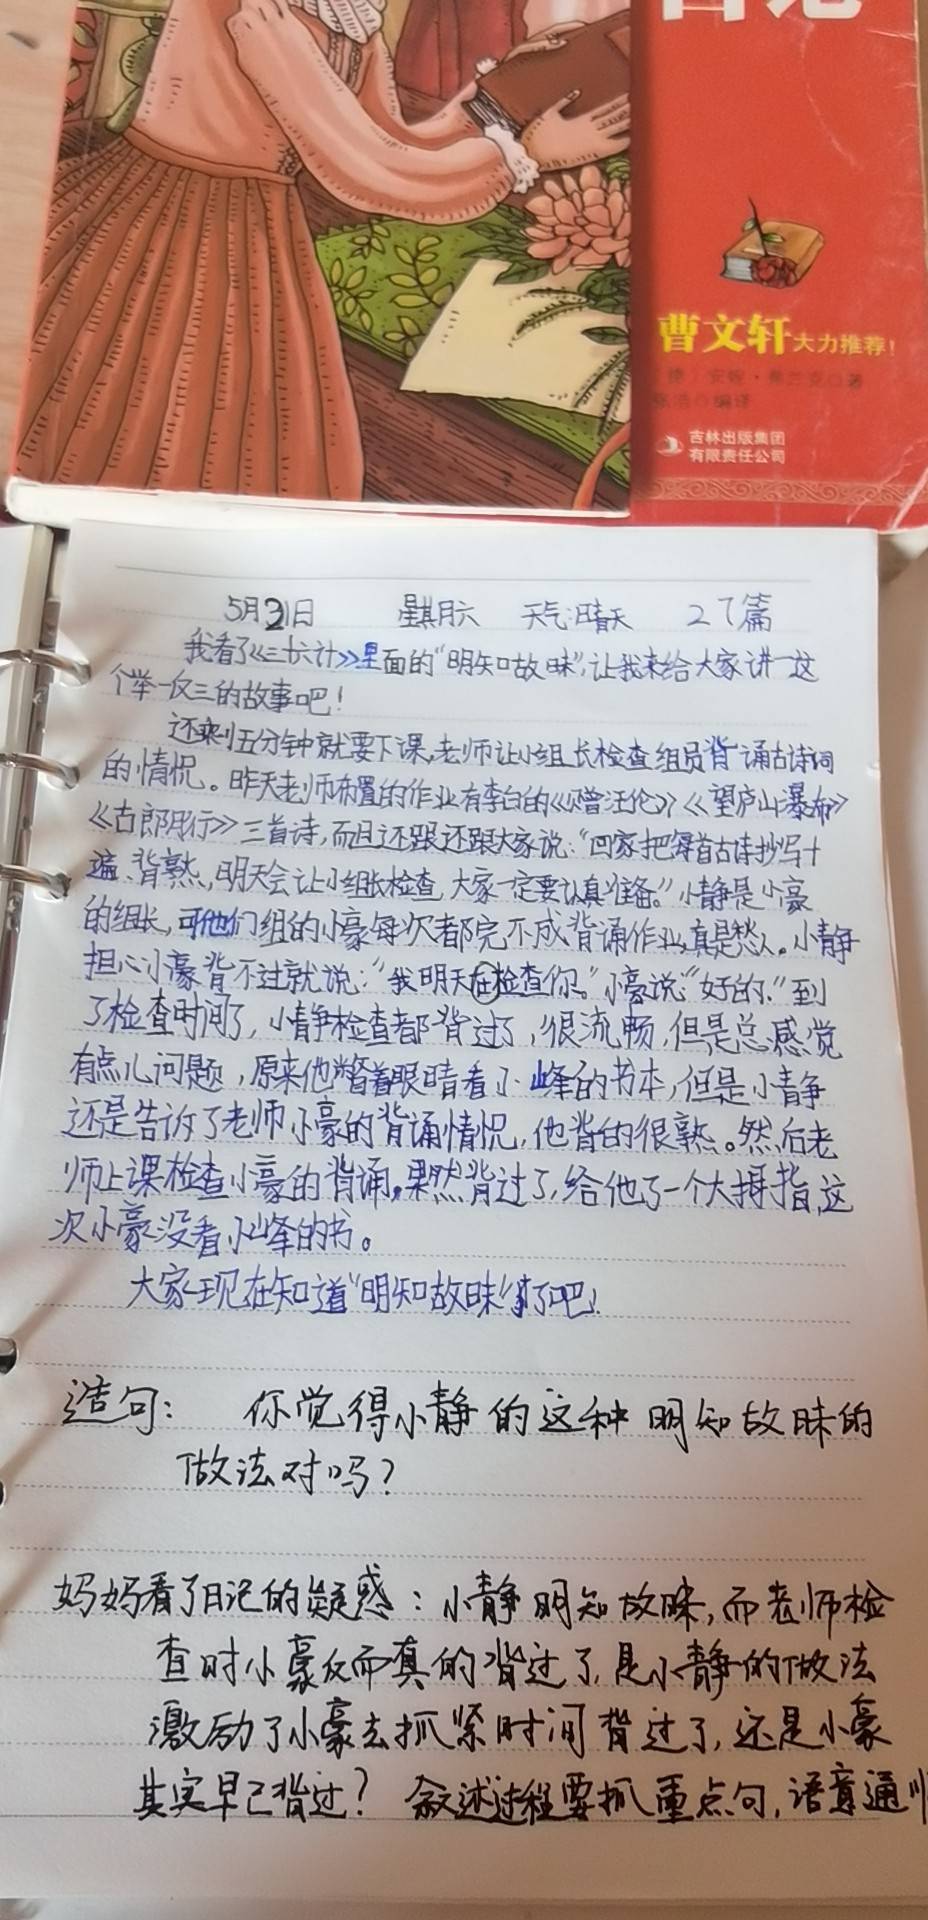 曹文轩大力推荐！
［德］安妮·弗兰克◎著
张洁◎编译
吉林出版集团
有限责任公司
5月21日 星期六 天气:晴天 27篇
我看了《三十六计》里面的“明知故昧”,让我来给大家讲一这
个举一反三的故事吧！
还来小五分钟就要下课,老师让小组长检查组员背诵古诗词
的情况。昨天老师布置的作业有李白的《赠汪伦》《望庐山瀑布》
《古郎月行》三首诗,而且还跟还跟大家说:“回家把每首古诗抄写十
遍、背熟,明天会让小组长检查,大家一定要认真准备。”小静是小豪
的组长,可他们组的小豪每次都完不成背诵作业,真是愁人。小静
担心小豪背不过就说:“我明天在检查你。”小豪说:“好的.”到
了检查时间了,小静检查都背过了,很流畅,但是总感觉
有点儿问题,原来他瞥着眼睛看小峰的书本,但是小静
还是告诉了老师小豪的背诵情况,他背的很熟。然后老
师上课检查小豪的背诵,果然背过了,给他了一个大拇指,这
次小豪没看小峰的书。
大家现在知道“明知故昧”了吧！
造句: 你觉得小静的这种明知故昧的
做法对吗?
妈妈看了日记的疑惑:小静明知故昧,而老师检
查时小豪反而真的背过了,是小静的做法
激励了小豪去抓紧时间背过了,还是小豪
其实早已背过? 叙述过程要抓重点句,语意通顺